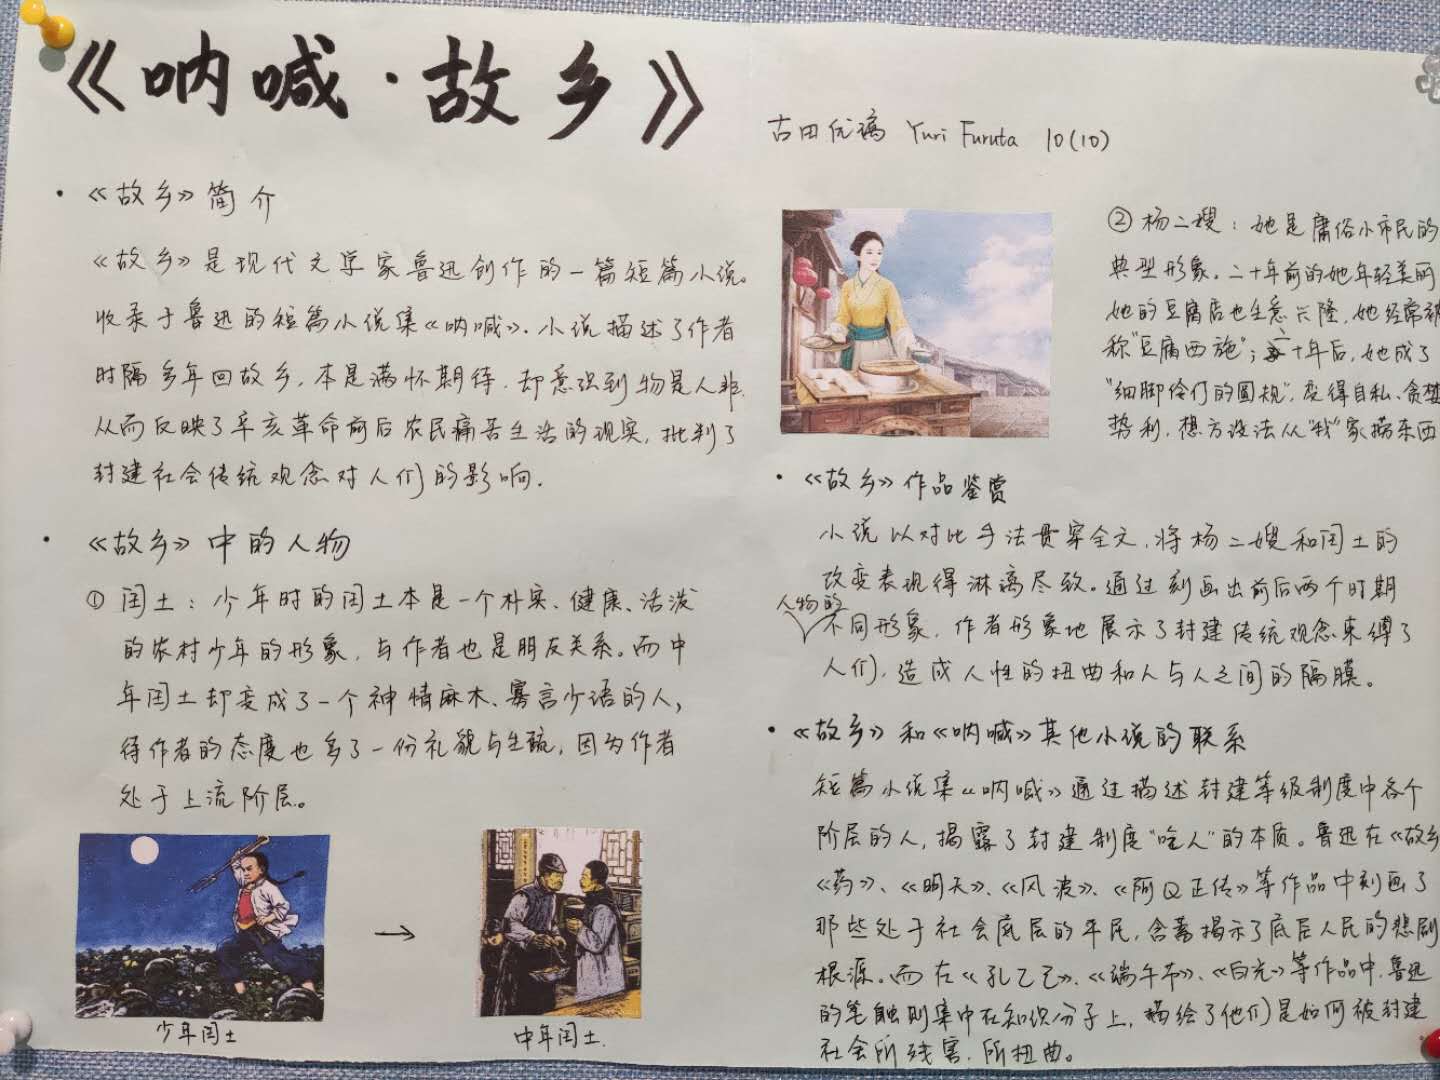 《呐喊·故乡》
古田优漓 Yuri Furuta 10(10)
·《故乡》简介
《故乡》是现代文学家鲁迅创作的一篇短篇小说。
收录于鲁迅的短篇小说集《呐喊》。小说描述了作者
时隔多年回故乡,本是满怀期待,却意识到物是人非,
从而反映了辛亥革命前后农民痛苦生活的现实,批判了
封建社会传统观念对人们的影响.
·《故乡》中的人物
① 闰土:少年时的闰土本是一个朴实、健康、活泼
的农村少年的形象,与作者也是朋友关系。而中
年闰土却变成了一个神情麻木、寡言少语的人,
待作者的态度也多了一份礼貌与生疏,因为作者
处于上流阶层。
少年闰土
→
中年闰土.
② 杨二嫂:她是庸俗小市民的
典型形象。二十年前的她年轻美丽
她的豆腐店也生意兴隆,她经常被
称"豆腐西施";二十年后,她成了
"细脚伶仃的圆规",变得自私、贪婪
势利,想方设法从"我"家捞东西
·《故乡》作品鉴赏
小说以对比手法贯穿全文,将杨二嫂和闰土的
改变表现得淋漓尽致。通过刻画出前后两个时期
人物的
不同形象,作者形象地展示了封建传统观念束缚了
人们,造成人性的扭曲和人与人之间的隔膜。
·《故乡》和《呐喊》其他小说的联系
短篇小说集《呐喊》通过描述封建等级制度中各个
阶层的人,揭露了封建制度"吃人"的本质。鲁迅在《故乡
《药》、《明天》、《风波》、《阿Q正传》等作品中刻画了
那些处于社会底层的平民,含蓄揭示了底层人民的悲剧
根源。而在《孔乙己》、《端午节》、《白光》等作品中,鲁迅
的笔触则集中在知识分子上,描绘了他们是如何被封建
社会所残害、所扭曲。